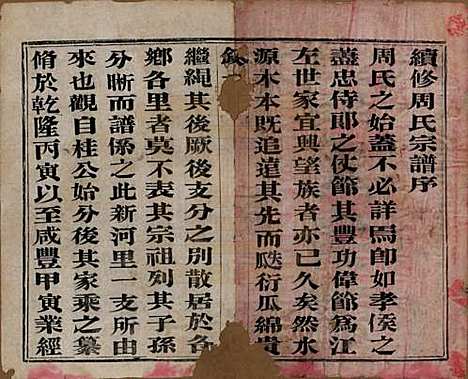 續修周氏宗譜序
周氏之始蓋不必詳焉卽如孝侯之
盡忠侍郎之仗節其豐功偉節爲江
左世家宜興望族者亦已久矣然水
源木本既追遠其先而瓜瓞衍瓜綿貴
繼繩其後厥後支分之別散居於各
鄉各里者莫不表其宗祖到其子孫
分晰而譜係之此新河里一支所由
來也觀自桂公始分後其家乘之纂
脩於乾隆丙寅以至咸豐甲寅業經